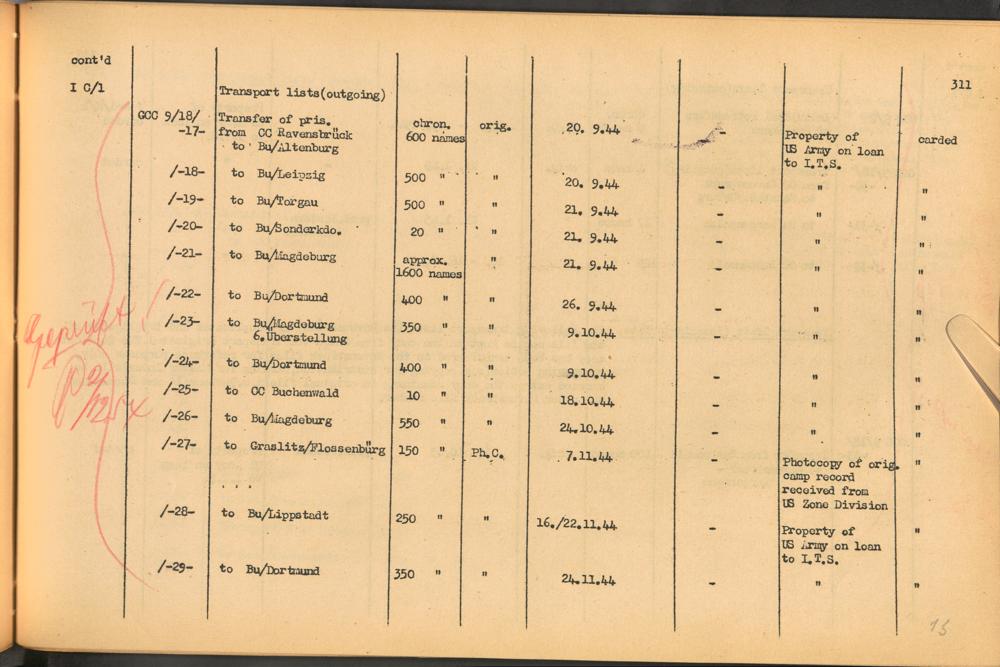 cont'd
I C/1
311
Transport lists(outgoing)
GCC 9/18/
-17-
Transfer of pris.
from CC Ravensbrück
to Bu/Altenburg
chron.
600 names
orig.
20. 9.44
-
Property of
US Army on loan
to I.T.S.
carded
/-18- to Bu/Leipzig 500 " " 20. 9.44 - " "
/-19- to Bu/Torgau 500 " " 21. 9.44 - " "
/-20- to Bu/Sonderkdo. 20 " " 21. 9.44 - " "
/-21- to Bu/Magdeburg approx. " 21. 9.44 - " "
1600 names
/-22- to Bu/Dortmund 400 " " 26. 9.44 - " "
/-23- to Bu/Magdeburg 350 " " 9.10.44 - " "
6.Überstellung
/-24- to Bu/Dortmund 400 " " 9.10.44 - " "
/-25- to CC Buchenwald 10 " " 18.10.44 - " "
/-26- to Bu/Magdeburg 550 " " 24.10.44 - " "
/-27- to Graslitz/Flossenbürg 150 Ph.C. 7.11.44 - Photocopy of orig. "
camp record
received from
US Zone Division
. . .
/-28- to Bu/Lippstadt 250 " " 16./22.11.44 - Property of "
US Army on loan
to I.T.S.
/-29- to Bu/Dortmund 350 " " 24.11.44 - " "
Geprüft!